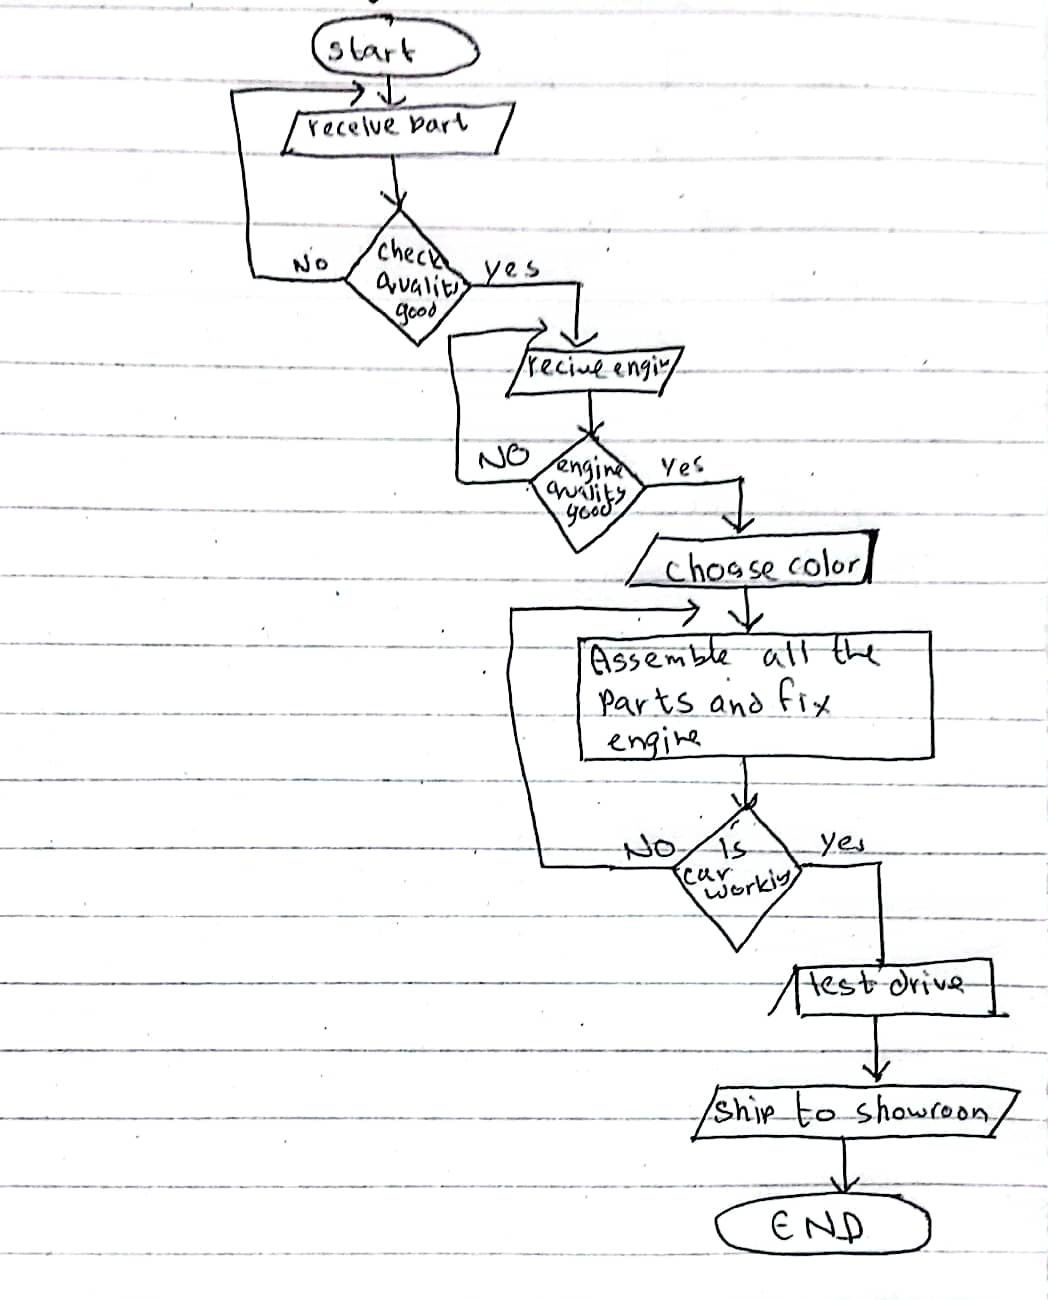 start
receive part
check
quality
good
No
yes
recive engin
engine
quality
good
NO
yes
choose color
Assemble all the
parts and fix
engine
Is
car
workig
NO
yes
test drive
ship to showroon
END